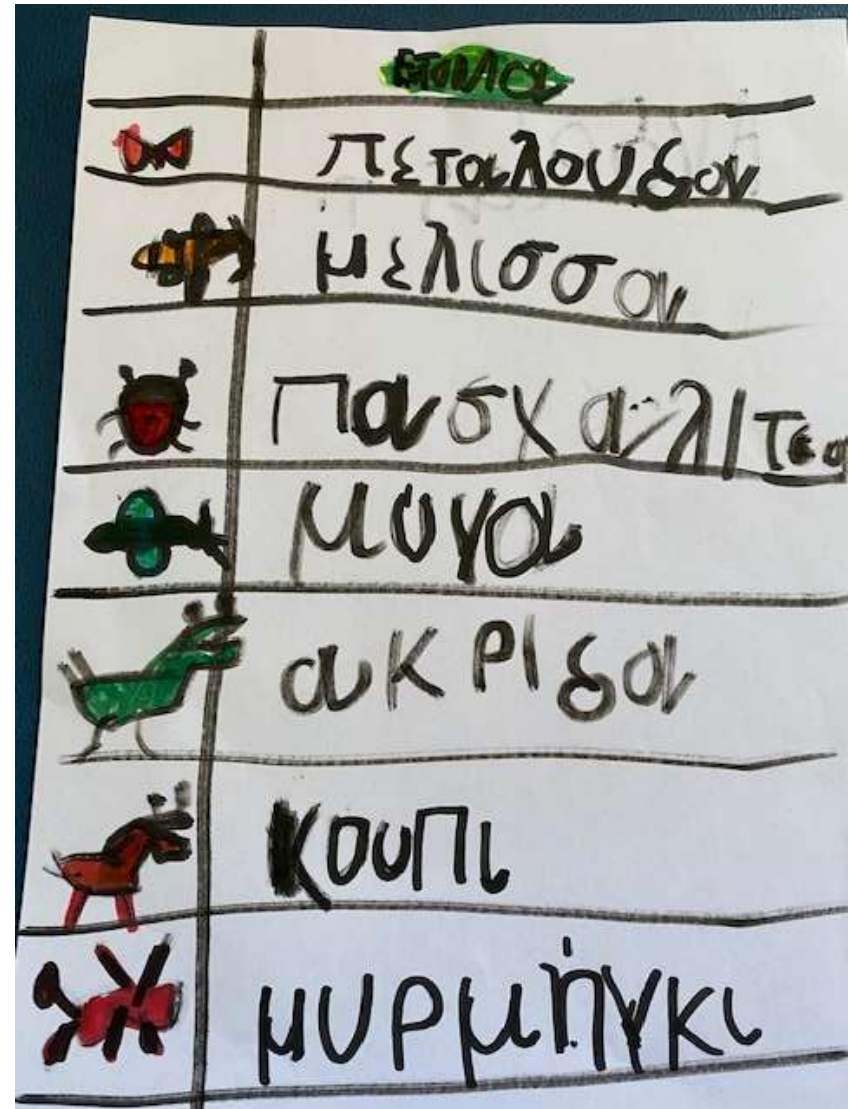 πεταλουδα
μελισσα
Πασχαλιτσα
μυγα
ακριδα
κουπι
μυρμήγκι